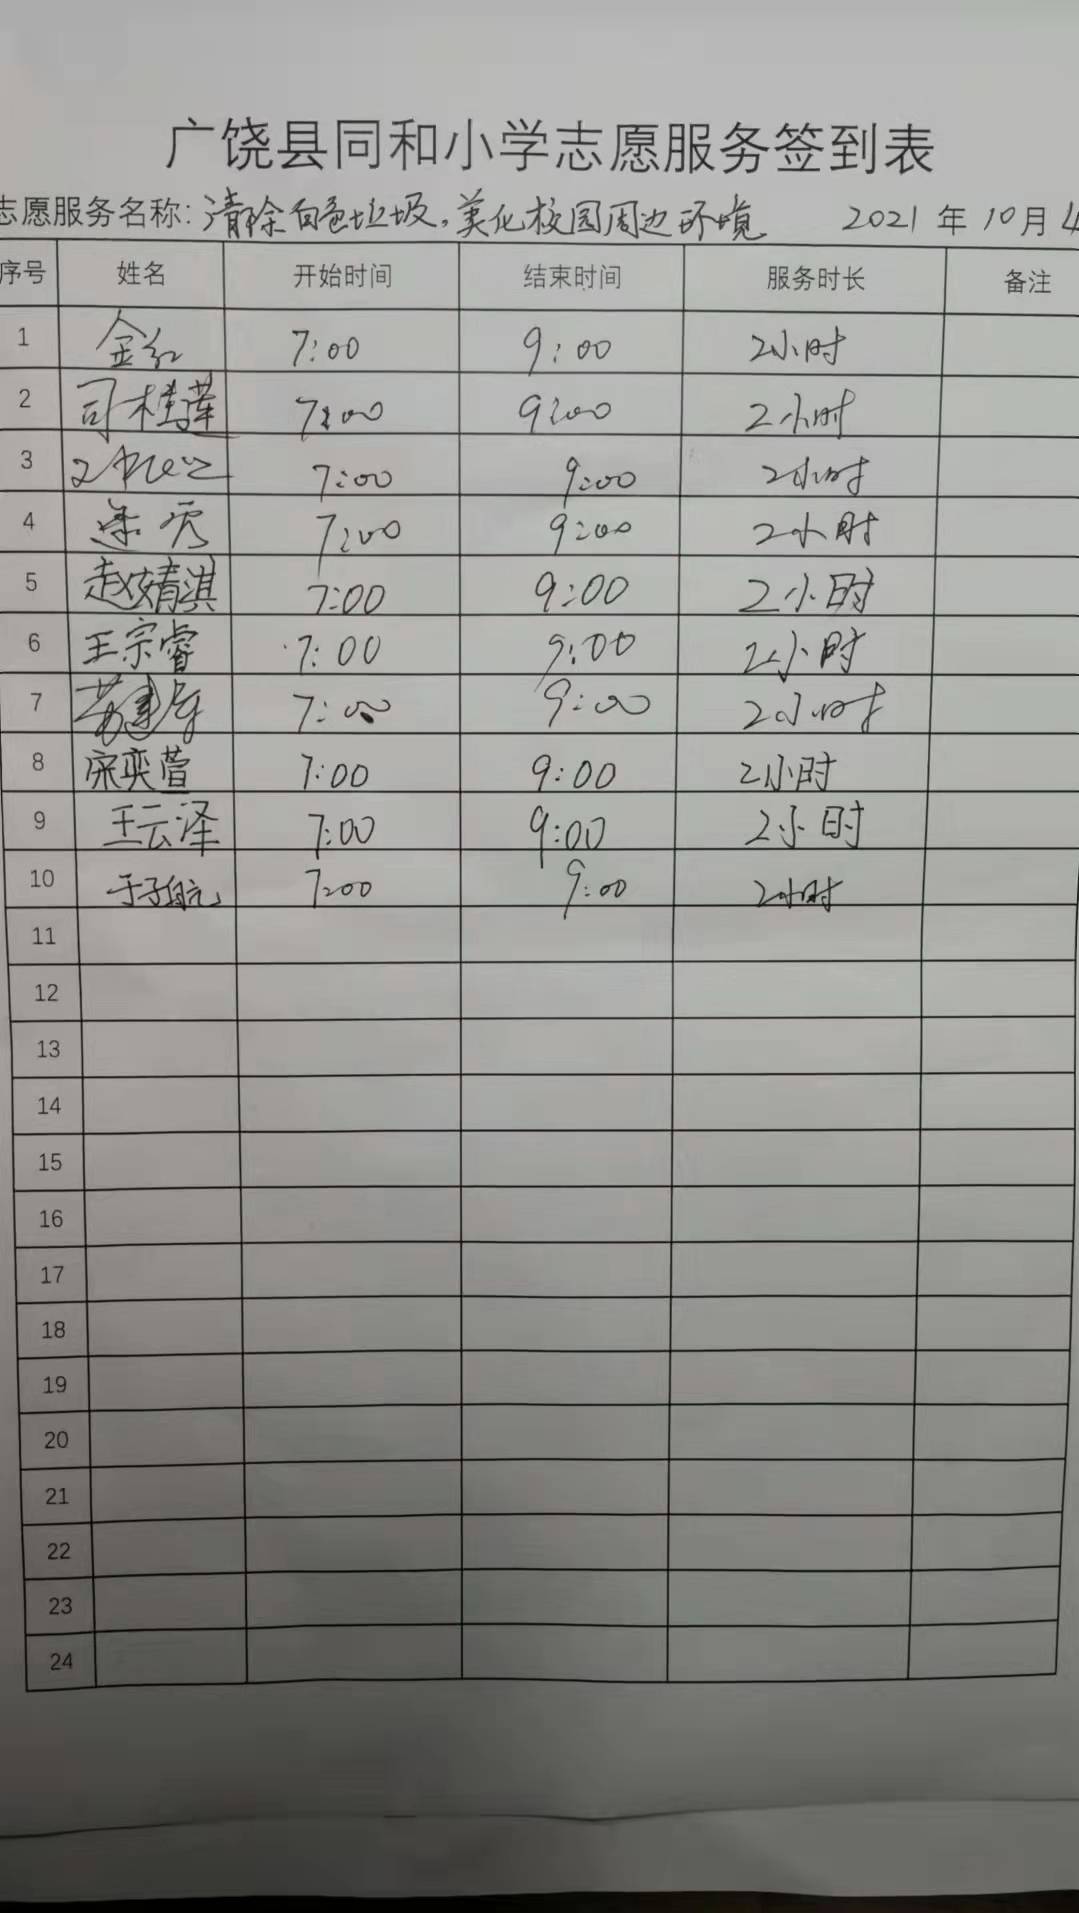 广饶县同和小学志愿服务签到表
志愿服务名称:清除白色垃圾,美化校园周边环境 2021年10月4
序号 姓名 开始时间 结束时间 服务时长 备注
1 金红 7:00 9:00 2小时
2 司桂莲 7:00 9:00 2小时
3 7:00 9:00 2小时
4 7:00 9:00 2小时
5 赵婧淇 7:00 9:00 2小时
6 王宗睿 7:00 9:00 2小时
7 7:00 9:00 2小时
8 宋奕萱 7:00 9:00 2小时
9 王云泽 7:00 9:00 2小时
10 于子航 7:00 9:00 2小时
11
12
13
14
15
16
17
18
19
20
21
22
23
24